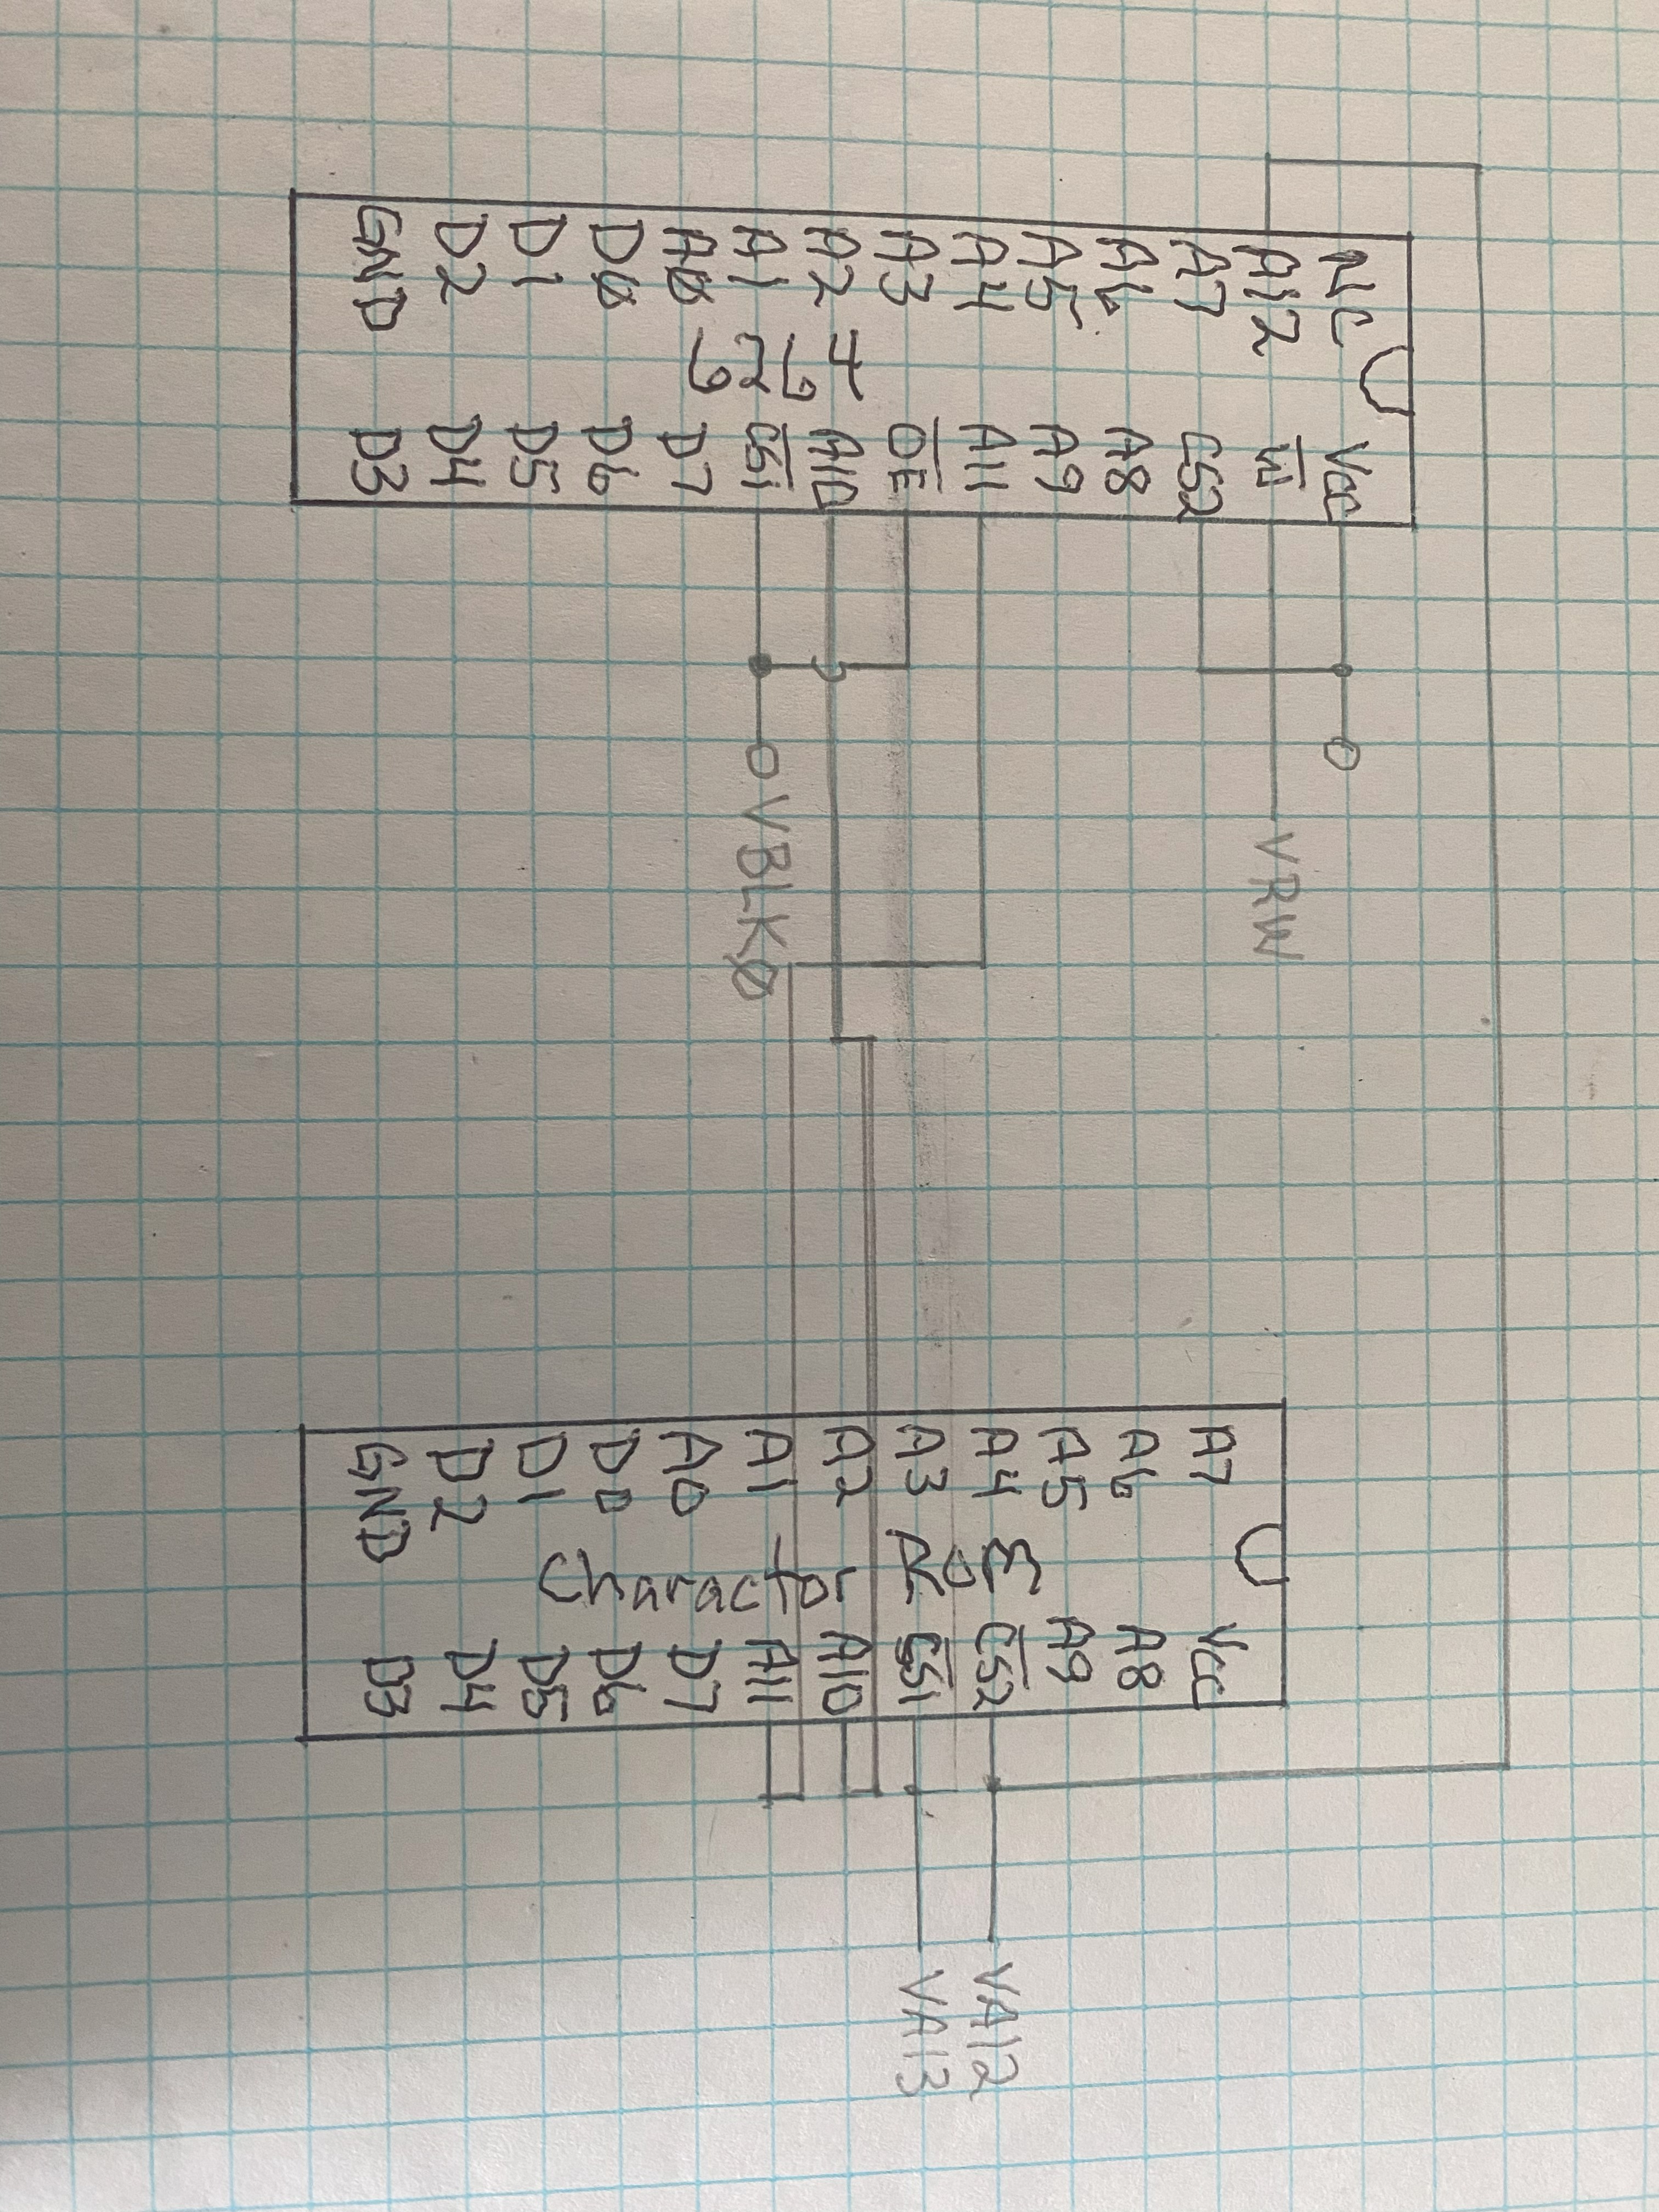 NC Vcc
A12 W̅ VRW
A7 CS2
A6 A8
A5 A9
A4 A11
A3 O̅E̅
A2 A10
A1 C̅S̅1̅ VBLKØ
AØ D7
DØ D6
D1 D5
D2 D4
GND D3
6264
A7 Vcc
A6 A8
A5 A9
A4 C̅S̅2̅ VA12
A3 C̅S̅1̅ VA13
A2 A10
A1 A11
A0 D7
D0 D6
D1 D5
D2 D4
GND D3
Charactor ROM